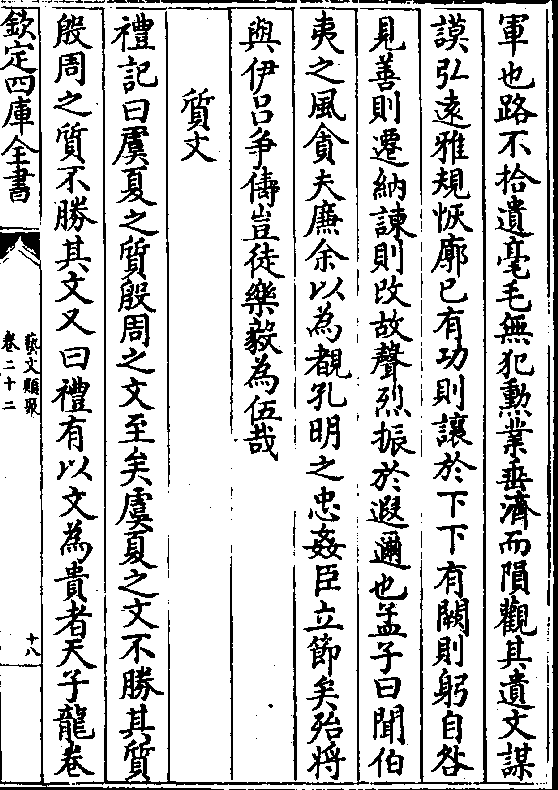 軍也路不拾遺毫毛無犯勲業垂濟而隕觀其遺文謀
謨弘逺雅規恢廓已有功則讓於下下有闕則躬自咎
見善則遷納諫則改故聲烈振於遐邇也孟子曰聞伯
夷之風貪夫廉余以為覩孔明之忠姦臣立節矣殆將
與伊吕爭儔豈徒樂毅為伍哉
質文
禮記曰虞夏之質殷周之文至矣虞夏之文不勝其質
殷周之質不勝其文又曰禮有以文為貴者天子龍卷
欽定四庫全書
藝文類聚
卷二十二
十八